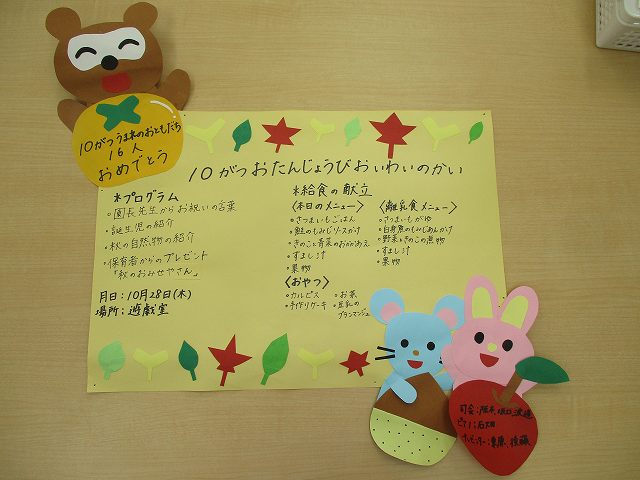 10がつうまれのおともだち
16人
おめでとう
10がつおたんじょうびおいわいのかい
*プログラム
。園長先生からお祝いの言葉
。誕生児の紹介
。秋の自然物の紹介
。保育者からのプレゼント
「秋のおみせやさん」
月日：10月28日(木)
場所：遊戯室
*給食の献立
〈本日のメニュー〉
。さつまいもごはん
。鮭のもみじソースがけ
。きのこと青菜のおかかあえ
。すまし汁
。果物
〈離乳食メニュー〉
。さつまいもがゆ
。白身魚のもみじあんかけ
。野菜ときのこの煮物
。すまし汁
。果物
〈おやつ〉
。カルピス
。手作りケーキ
。お茶
。豆乳のブランマンジェ
司会：
ピアノ：